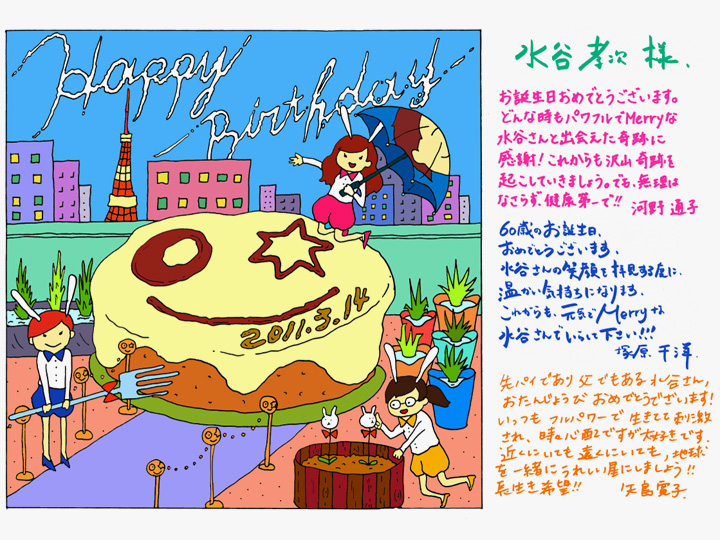 Happy
Birthday
2011.3.14
水谷孝次 様、
お誕生日おめでとうございます。
どんな時もパワフルでMerryな
水谷さんと出会えた奇跡に
感謝！これからも沢山奇跡を
起こしていきましょう。でも、無理は
なさらず、健康第一で!!
河野 通子
60歳のお誕生日、
おめでとうございます、
水谷さんの笑顔を拝見する度に、
温かい気持ちになります、
これからも、元気でMerryな
水谷さんでいらして下さい!!!
塚原 千洋
先パイであり父でもある水谷さん、
おたんじょうび おめでとうございます！
いつも フルパワーで 生きてて 刺激
され、時々心配ですが大好きです。
近くにいても 遠くにいても、地球
を一緒にうれしい星にしましょう!!
長生き希望!!
矢島 寛子